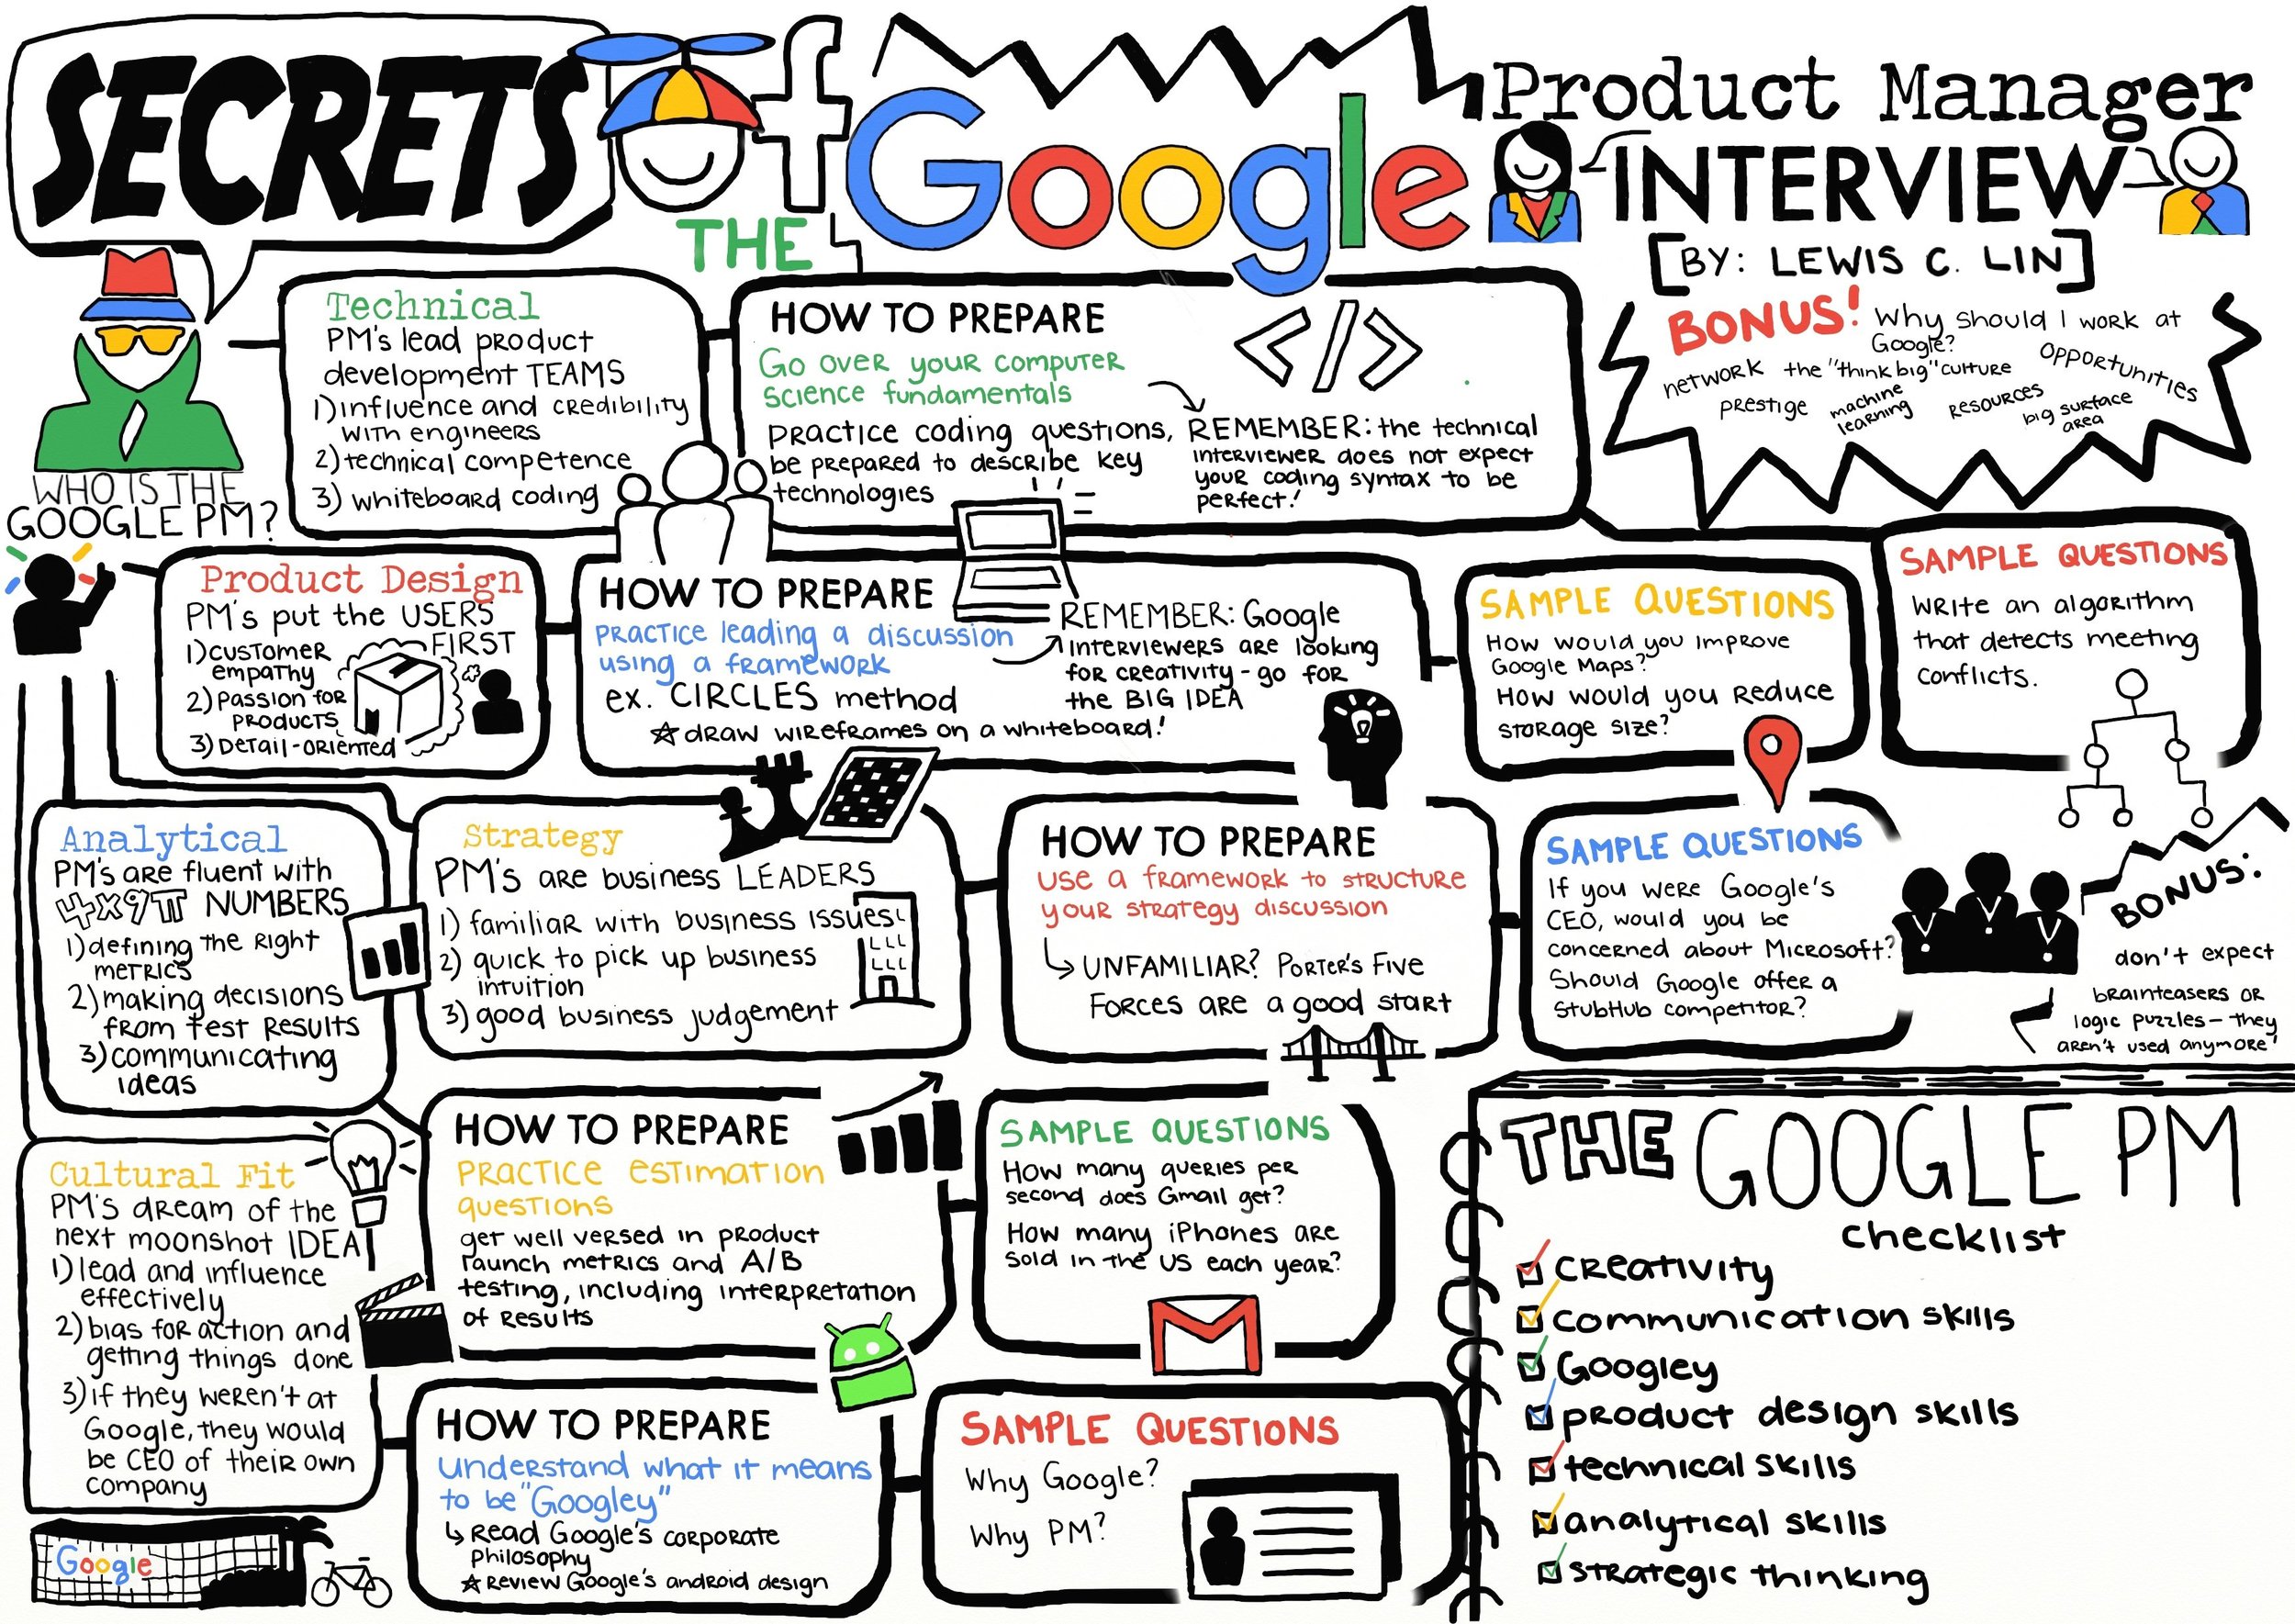 SECRETS of
THE Google
Product Manager
INTERVIEW
[BY: LEWIS C. LIN]
BONUS! Why should I work at
Google?
network the "think big" culture opportunities
prestige machine
learning
resources big surface
area
WHO IS THE
GOOGLE PM?
Technical
PM's lead product
development TEAMS
1) influence and credibility
with engineers
2) technical competence
3) whiteboard coding
HOW TO PREPARE
Go over your computer
science fundamentals
practice coding questions,
be prepared to describe key
technologies
</>
REMEMBER: the technical
interviewer does not expect
your coding syntax to be
perfect!
SAMPLE QUESTIONS
Write an algorithm
that detects meeting
conflicts.
Product Design
PM's put the USERS
FIRST
1) customer
empathy
2) passion for
products
3) Detail-oriented
HOW TO PREPARE
practice leading a discussion
using a framework
ex. CIRCLES method
☆ draw wireframes on a whiteboard!
REMEMBER: Google
interviewers are looking
for creativity - go for
the BIG IDEA
SAMPLE QUESTIONS
How would you improve
Google Maps?
How would you reduce
storage size?
Analytical
PM's are fluent with
4x9π NUMBERS
1) defining the right
metrics
2) making decisions
from test results
3) communicating
ideas
Strategy
PM's are business LEADERS
1) familiar with business issues
2) quick to pick up business
intuition
3) good business judgement
HOW TO PREPARE
use a framework to structure
your strategy discussion
↳ UNFAMILIAR? Porter's Five
Forces are a good start
SAMPLE QUESTIONS
If you were Google's
CEO, would you be
concerned about Microsoft?
Should Google offer a
StubHub competitor?
BONUS:
don't expect
brainteasers or
logic puzzles - they
aren't used anymore!
HOW TO PREPARE
practice estimation
questions
get well versed in product
launch metrics and A/B
testing, including interpretation
of results
SAMPLE QUESTIONS
How many queries per
second does Gmail get?
How many iPhones are
sold in the US each year?
Cultural Fit
PM's dream of the
next moonshot IDEA!
1) lead and influence
effectively
2) bias for action and
getting things done
3) if they weren't at
Google, they would
be CEO of their own
company
HOW TO PREPARE
Understand what it means
to be "Googley"
↳ Read Google's corporate
philosophy
☆ Review Google's android design
SAMPLE QUESTIONS
Why Google?
Why PM?
Google
THE GOOGLE PM
checklist
creativity
communication skills
Googley
product design skills
technical skills
analytical skills
strategic thinking